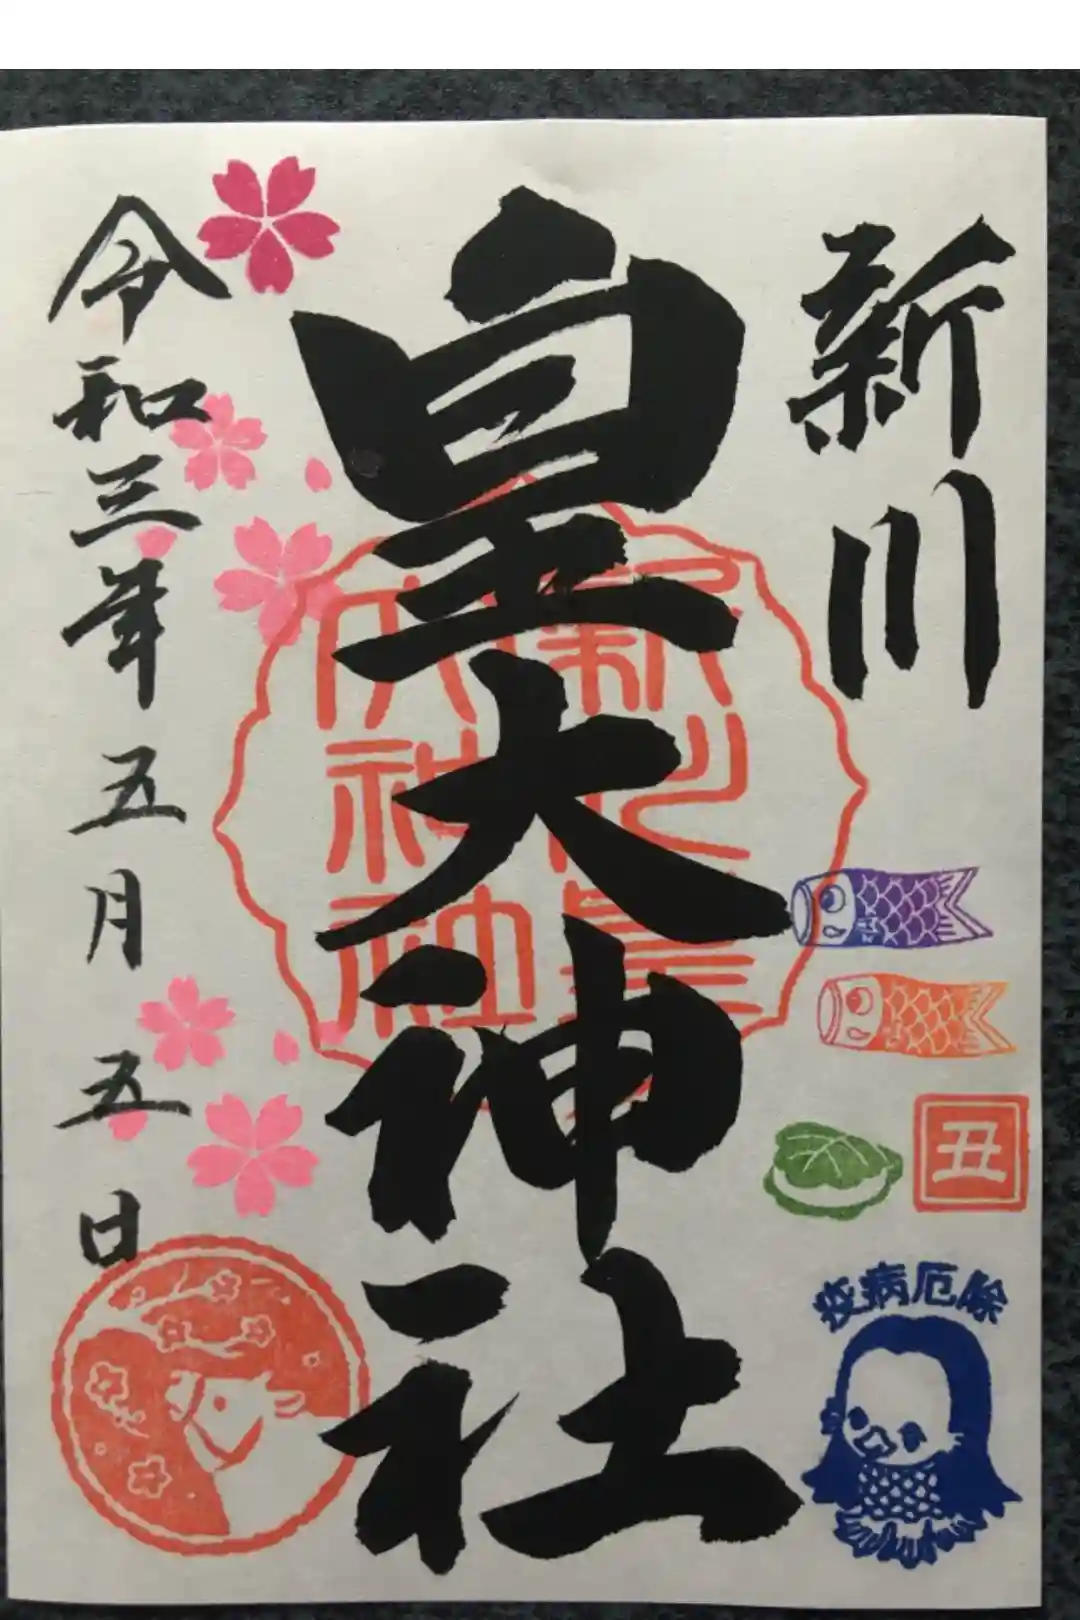 新川
皇大神社
令和三年五月五日
新川皇
大神社
丑
疫病厄除